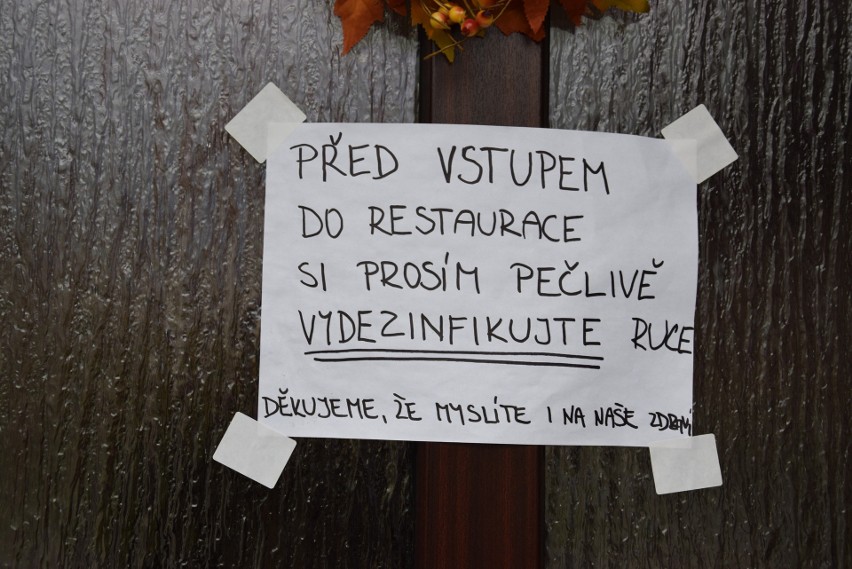 PŘED VSTUPEM
DO RESTAURACE
SI PROSÍM PEČLIVĚ
VYDEZINFIKUJTE RUCE
DĚKUJEME, ŽE MYSLÍTE I NA NAŠE ZDRAVÍ